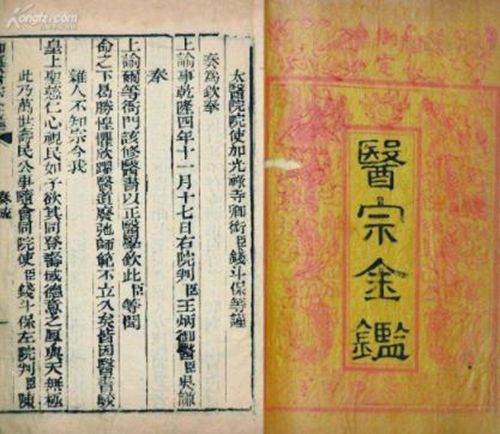 醫宗金鑑
太醫院院使加光祿寺卿銜臣錢斗保等謹
奏爲欽奉
上諭事乾隆四年十一月十七日右院判臣王炳御醫臣吳謙
奉
上諭爾等衙門該修醫書以正醫學欽此臣等聞
命之下曷勝惶懼欣躍醫道廢弛師範不立久矣皆因醫書駁
雜人不知宗今我
皇上聖慈仁心視民如子欲其同登壽域德意之厚與天無極
此乃萬世壽民公事隨會同院使臣錢斗保左院判臣陳
奏疏
Kongfz.com